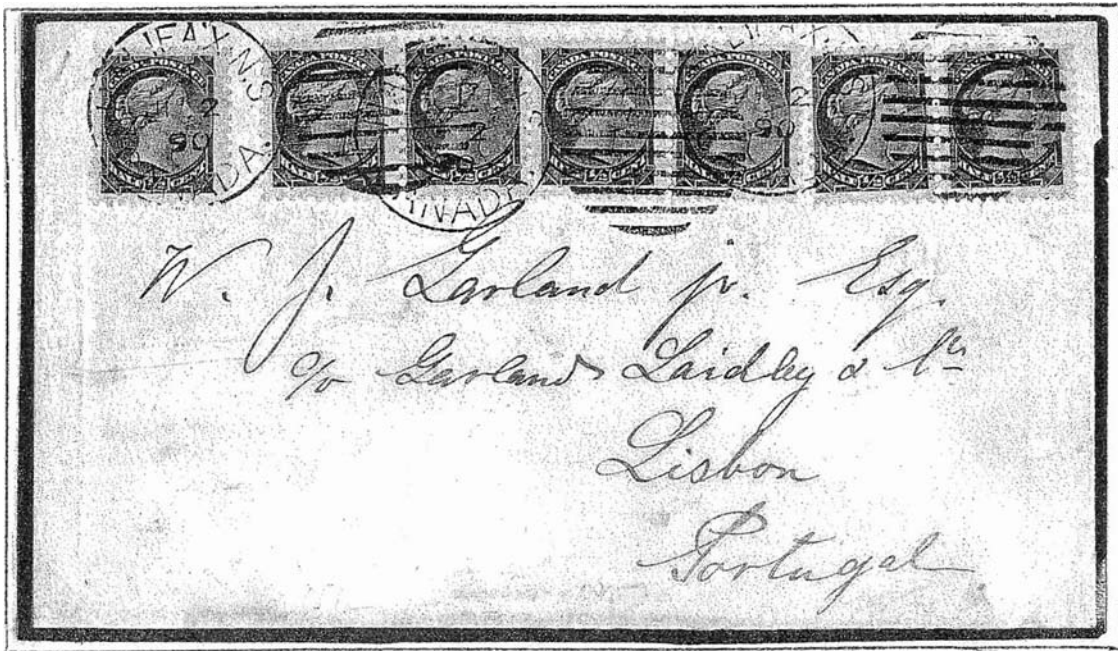 HALIFAX N.S.
2
90
CANADA.
CANADA
HALIFAX
2
90
W. J. Garland jr. Esq.
c/o Garland Laidley & Co
Lisbon
Portugal